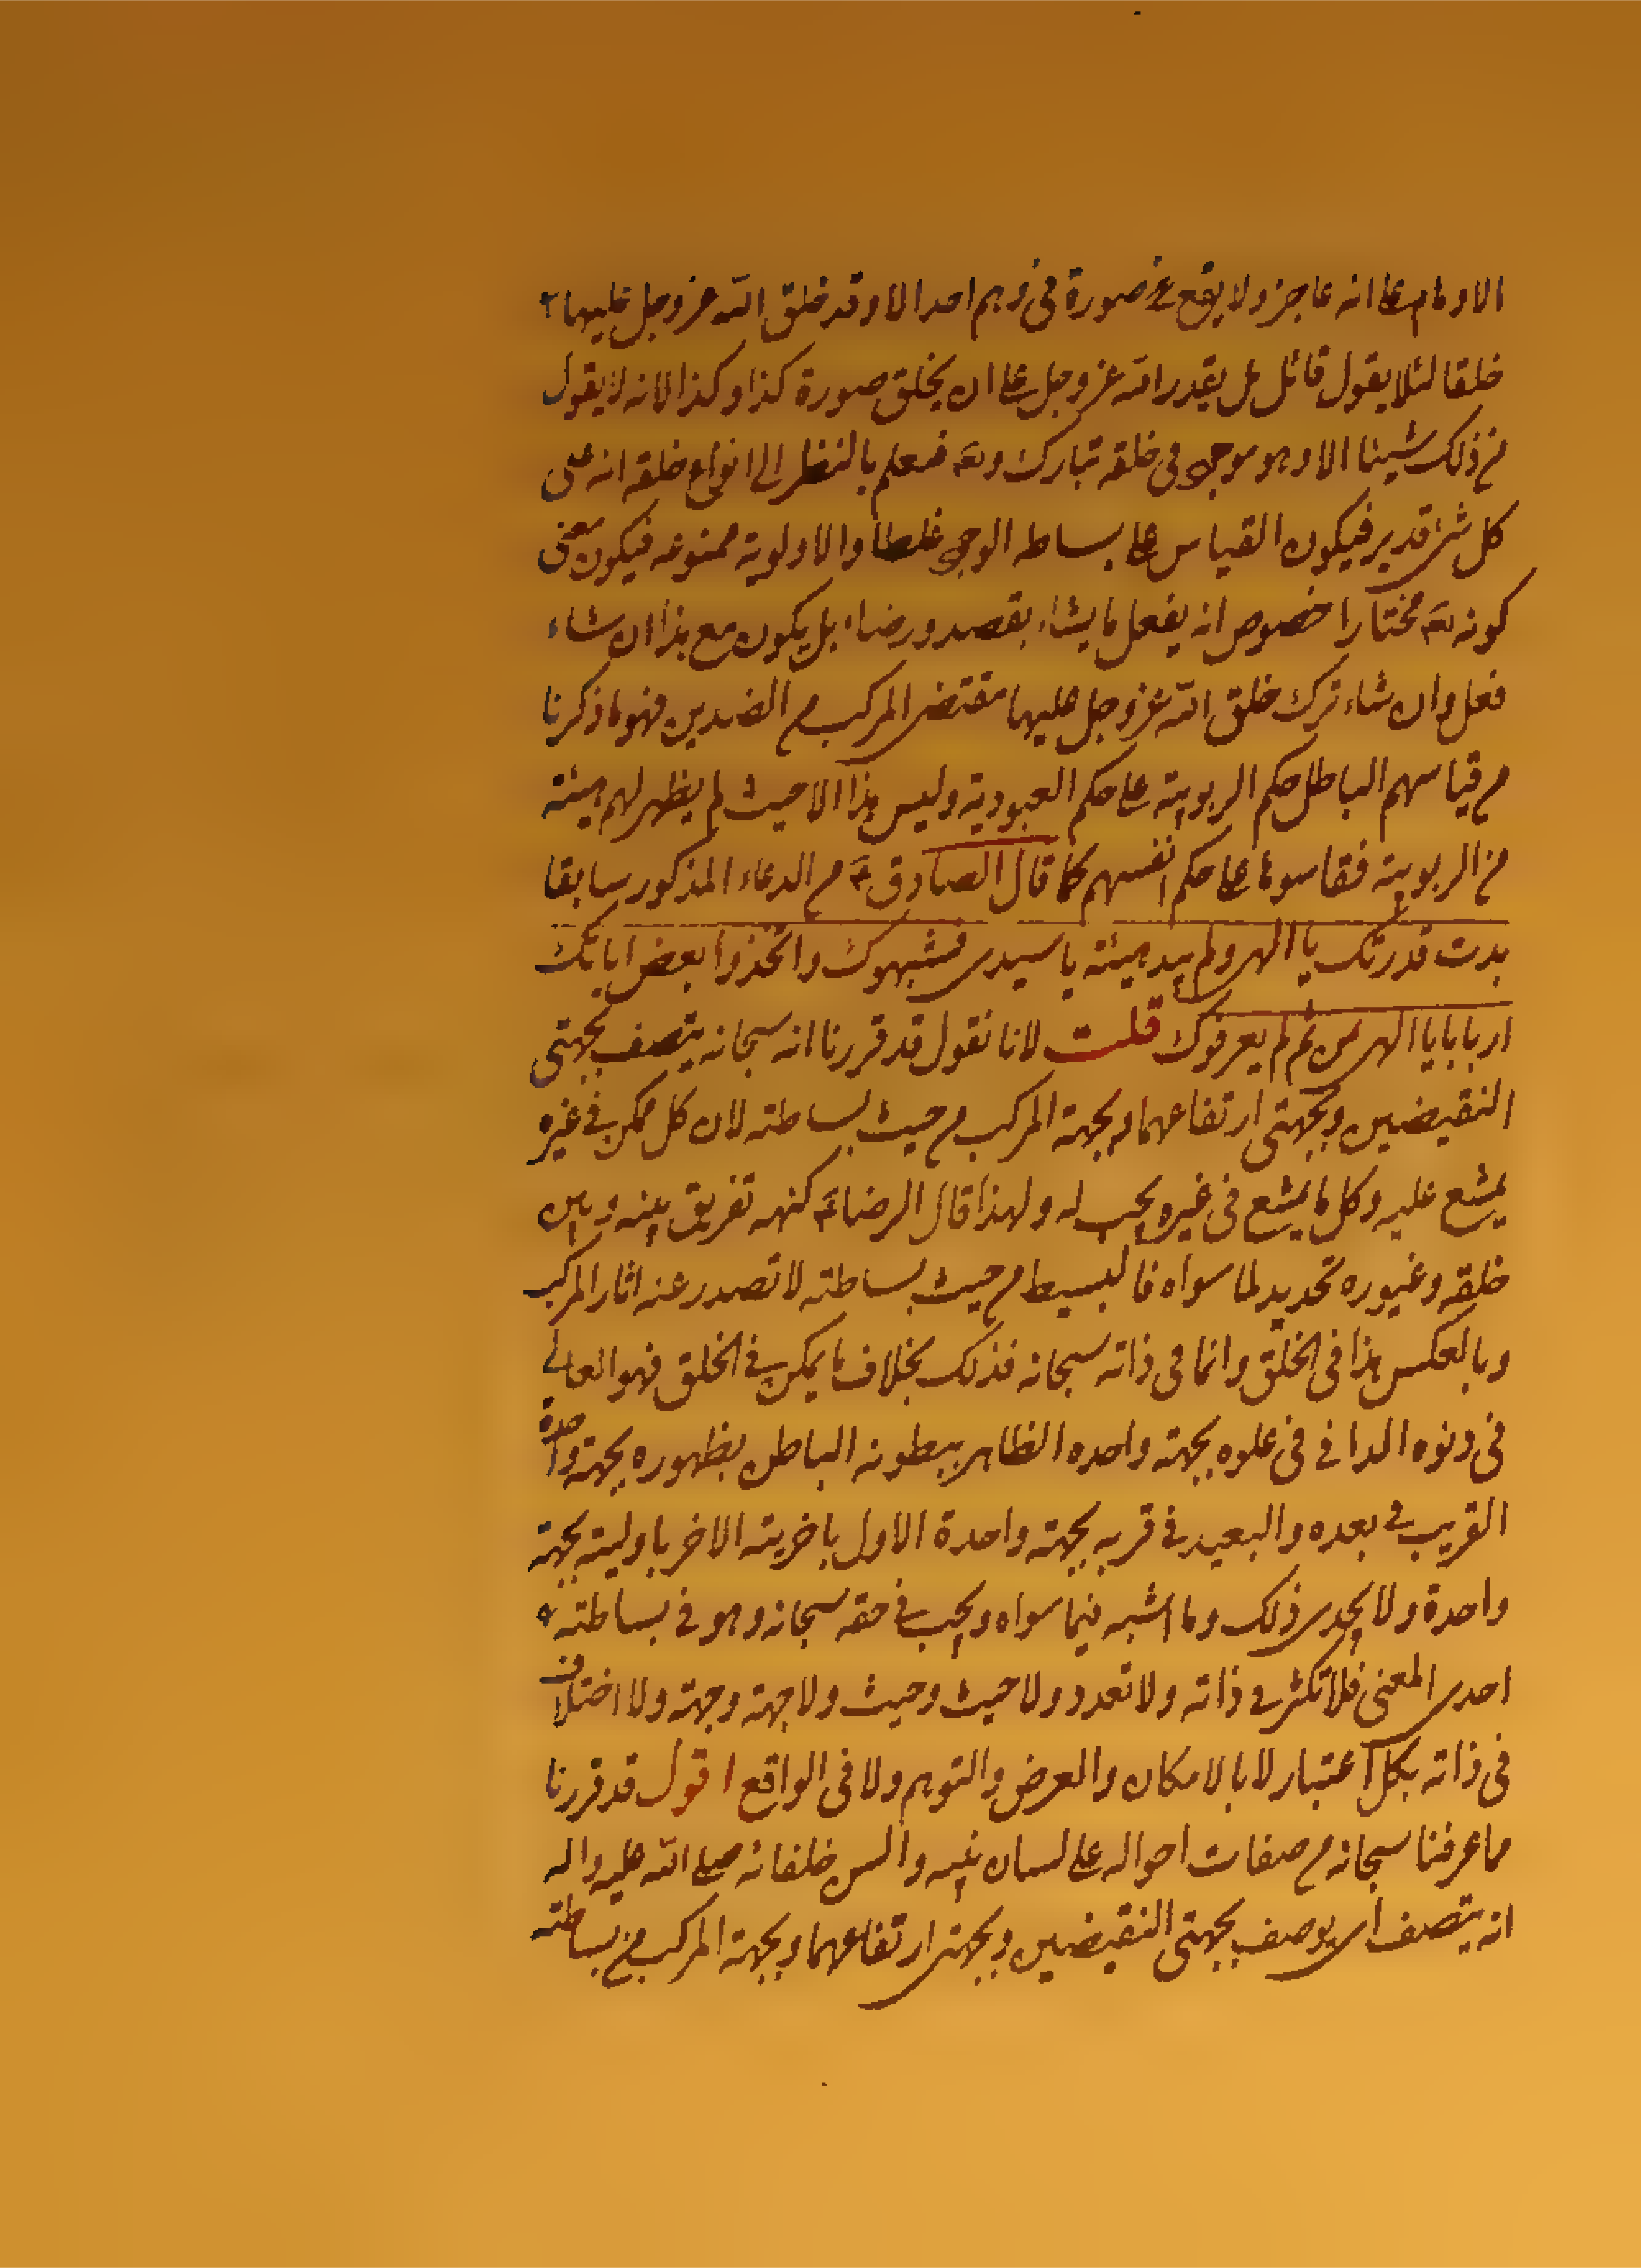 الاوهام علی انه عاجز ولا يقع علی صورة فی وهم احد الا وقد خلق الله عز وجل عليها
خلقا لئلا يقول قائل هل يقدر الله عز وجل علی ان يخلق صورة كذا وكذا لانه لا يقول
من ذلك شيئا الا وهو موجود فی خلقه تبارك وتع فيعلم بالنظر الی انواع خلقه انه علی
كل شئ قدير فيكون القياس علی بساطه الوجود غلطا والاولوية ممنوعه فيكون معنی
كونه تع مختارا خصوص انه يفعل ما يشاء بقصد ورضاء بل يكون مع هذا ان شاء
فعل وان شاء ترك خلق الله عز وجل عليها مقتضی المركب من الضدين فهو ما ذكرنا
من قياسهم الباطل حكم الربوبية علی حكم العبودية وليس هذا الا حيث لم يظهر لهم هيئة
من الربوبية فقاسوها علی حكم انفسهم كما قال الصادق ع م الدعاء المذكور سابقا
بدت قدرتك يا الهی ولم تبد هيئة يا سيدی فشبهوك واتخذوا بعض اياتك
اربابا يا الهی من ثم لم يعرفوك قلت لانا نقول قد قررنا انه سبحانه يتصف بجهتی
النقيضين وبجهتی ارتفاعهما وبجهة المركب من حيث بساطته لان كل ممكن فی غيره
يمتنع عليه وكل ما يمتنع فی غيره يجب له ولهذا قال الرضا ع كنهه تفريق بينه وبين
خلقه وغيوره تحديد لما سواه فالبسيط من حيث بساطته لا تصدر عنه اثار المركب
وبالعكس هذا فی الخلق وانما فی ذاته سبحانه فذلك بخلاف ما يمكن فی الخلق فهو العالی
فی دنوه الدانی فی علوه بجهة واحده الظاهر ببطونه الباطن بظهوره بجهة واحدة
القريب فی بعده والبعيد فی قربه بجهة واحدة الاول باخريته الاخر باوليته بجهة
واحدة ولا يجدی ذلك وما اشبه فيما سواه ويجب فی حقه سبحانه وهو فی بساطته
احدی المعنی فلا تكثر فی ذاته ولا تعدد ولا حيث وحيث ولا جهة وجهة ولا اختلاف
فی ذاته بكل اعتبار لا بالامكان والفرض والتوهم ولا فی الواقع اقول قد قررنا
مما عرفنا سبحانه من صفات احواله علی لسان نبيه والسن خلفائه صلی الله عليه واله
انه يتصف ای يوصف بجهتی النقيضين وبجهتی ارتفاعهما وبجهة المركب من بساطته